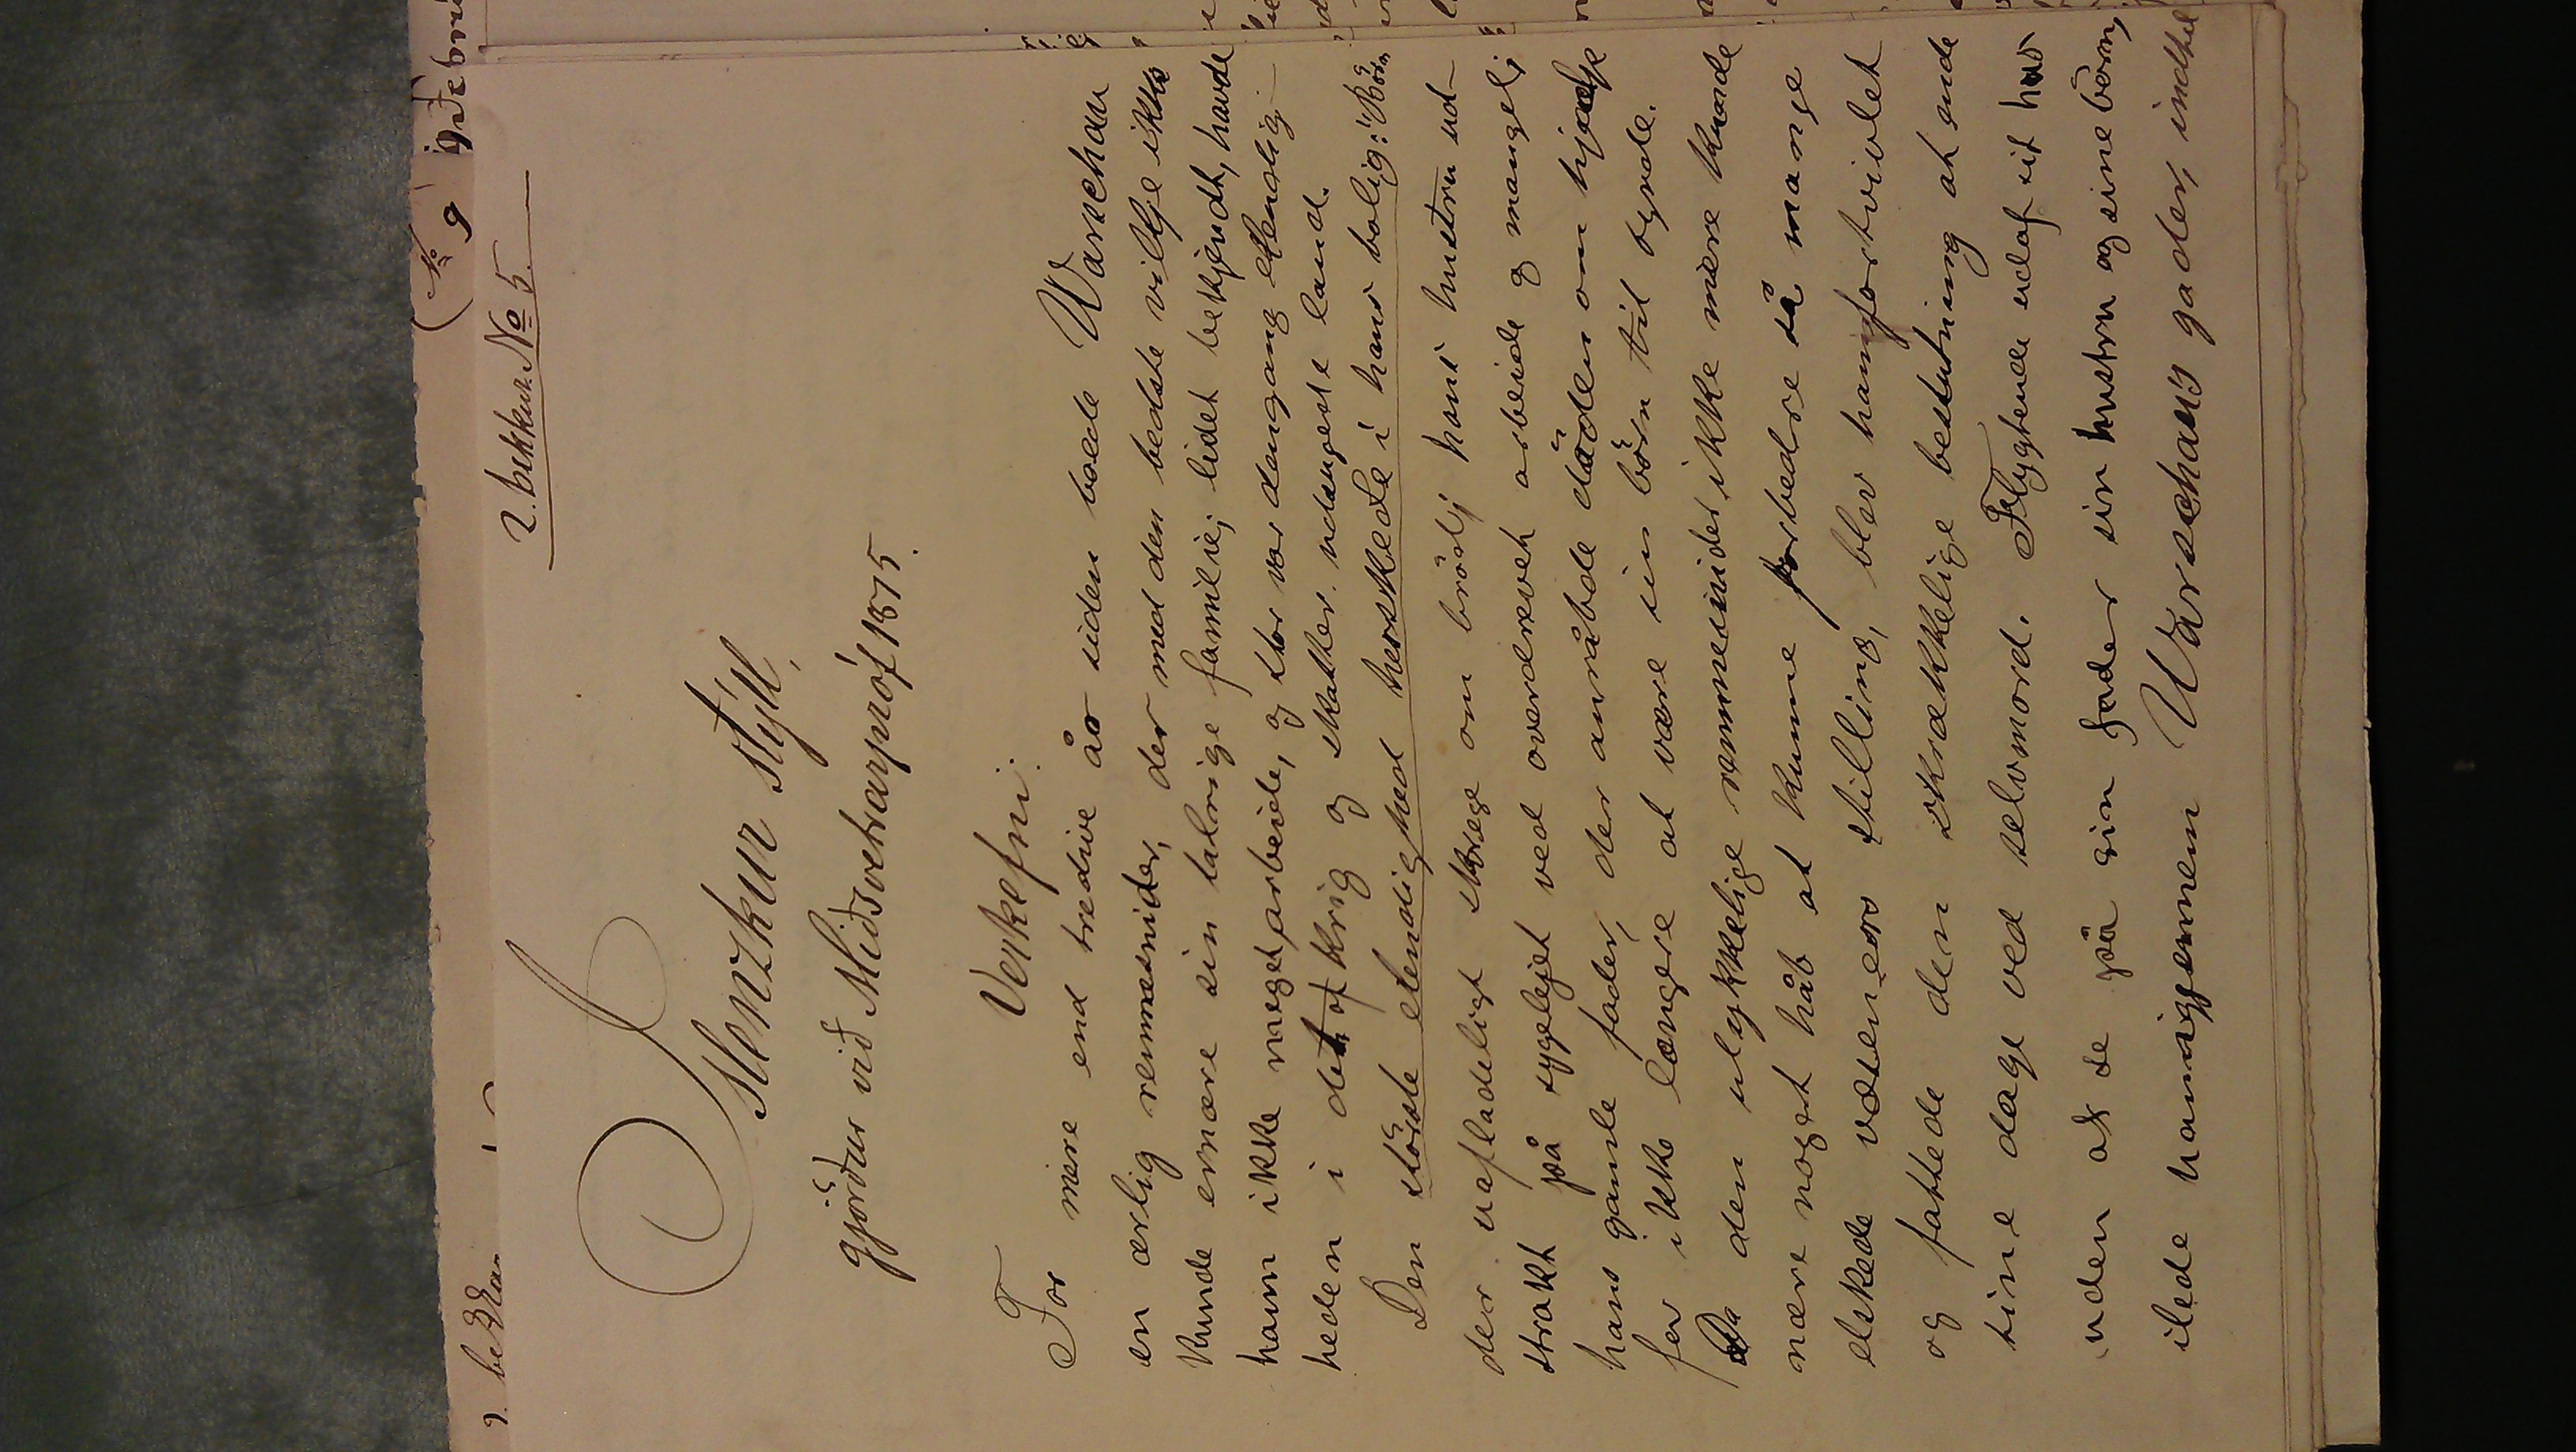 2. bekkur. No 5.
Islenzkur stýll,
gjörður við Miðsvetrarpróf 1875.
Verkefni:
For mere end tredive år siden boede i Warschau
en ærlig remmesnider, der med den bedste villje ikke
kunde ernære sin talrige familie; lidet bekjendt, havde
hann ikke meget arbeide, og stor var dengang elendig-
heden i det af krig og skatter udsugede land.
Den störste elendighed herskede i hans bolig: Börn
der uafladeligt skrege om bröd; hans hustru ud-
strakt på sygelejet ved overdrevet arbeide og mangel;
hans gamle fader, der anråbde döden om hjælp
for ikke længere at være sin börn til byrde.
Da den ulykkelige remmesnider ikke mere kunde
nære noget håb at kunne forbedre så mange
elskede væseners stilling, blev han fortvivlet
og fattede den skrækkelige beslutning at ende
sine dage ved selvmord. Flygtende udaf sit hus
uden at se på sin fader sin hustru og sine börn,
ilede han igjennem Warschaus gader, indtil